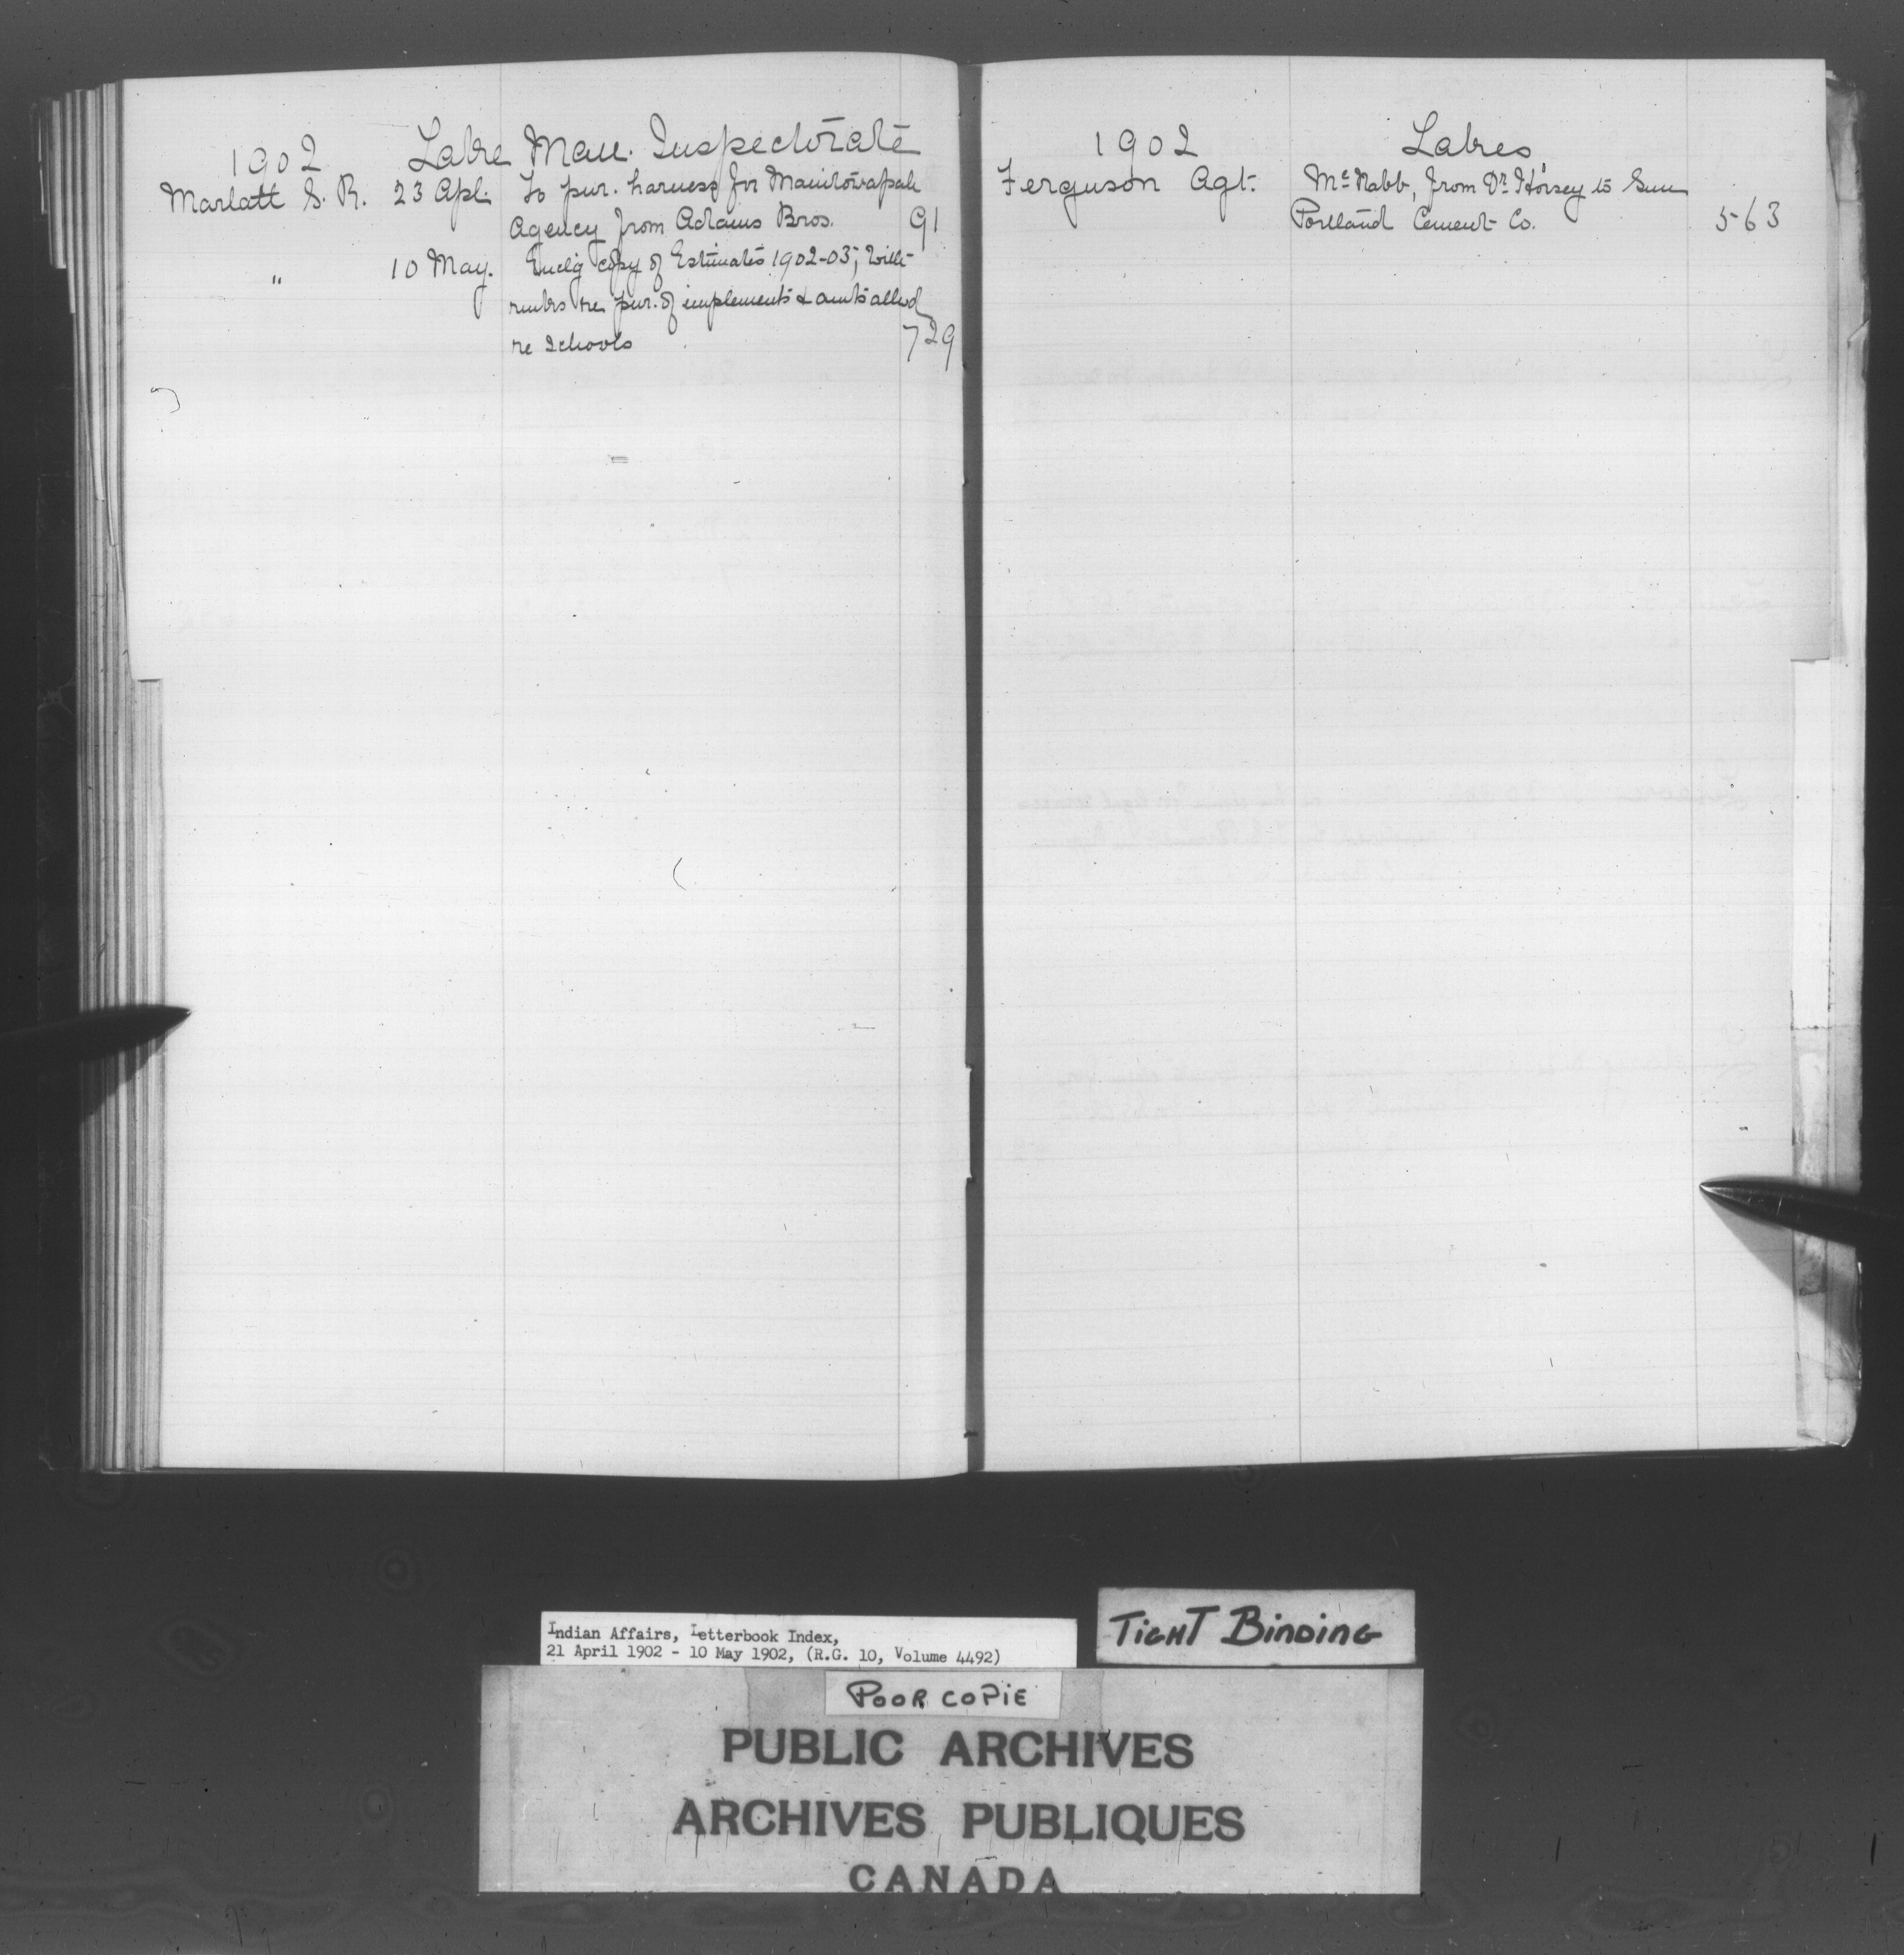 1902 Lake Man. Inspectorate
Marlatt S. R. 23 Apl. To pur. harness for Manitowapah
Agency from Adams Bros. 91
" 10 May. Enclg copy of Estimates 1902-03, with
rmks re pur. of implements & amts allwd
re schools 729
1902 Lakes
Ferguson Agt. McNabb, from Dr Horsey to Sun
Portland Cement Co. 563
Indian Affairs, Letterbook Index,
21 April 1902 - 10 May 1902, (R.G. 10, Volume 4492)
TIGHT BINDING
POOR COPIE
PUBLIC ARCHIVES
ARCHIVES PUBLIQUES
CANADA